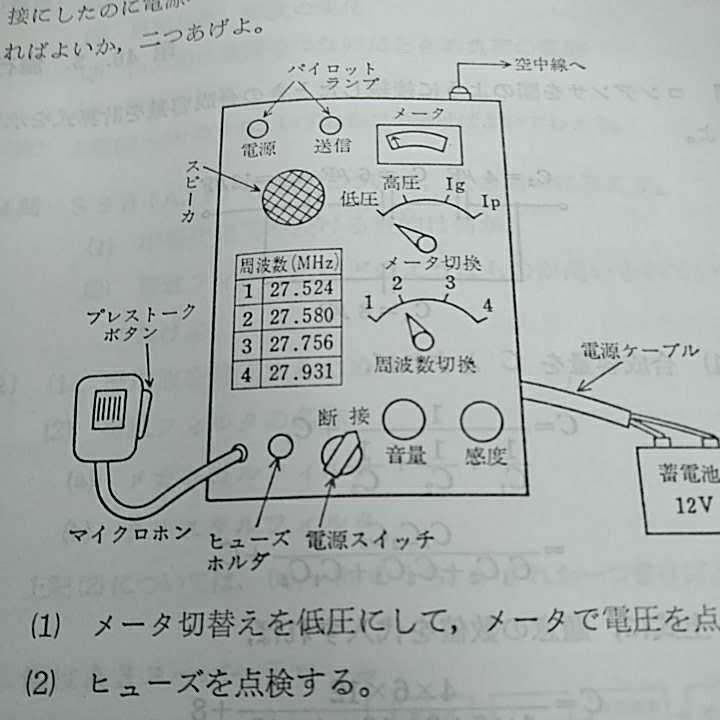 接にしたのに電源
ればよいか，二つあげよ。
パイロット
ランプ
空中線へ
電源
送信
メータ
スピーカ
低圧
高圧
Ig
Ip
メータ切換
周波数(MHz)
1 27.524
2 27.580
3 27.756
4 27.931
1
2
3
4
周波数切換
プレストーク
ボタン
電源ケーブル
断 接
音量
感度
蓄電池
12V
マイクロホン
ヒューズ
ホルダ
電源スイッチ
(1) メータ切替えを低圧にして，メータで電圧を点
(2) ヒューズを点検する。